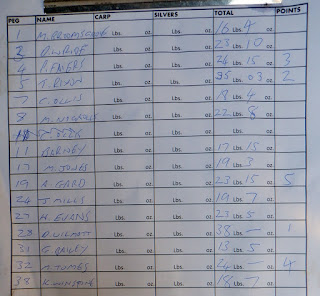 PEG NAME CARP SILVERS TOTAL POINTS
1 Lbs. oz. Lbs. oz. 16 Lbs. 4 oz.
3 Lbs. oz. Lbs. oz. 23 Lbs. 10 oz.
4 Lbs. oz. Lbs. oz. 26 Lbs. 15 oz. 3
5 T. DIXON Lbs. oz. Lbs. oz. 35 Lbs. 03 oz. 2
7 C. OLLIS Lbs. oz. Lbs. oz. 18 Lbs. 4 oz.
8 Lbs. oz. Lbs. oz. 22 Lbs. 8 oz.
Lbs. oz. Lbs. oz. Lbs. oz.
11 BARNEY Lbs. oz. Lbs. oz. 17 Lbs. 15 oz.
17 M. JONES Lbs. oz. Lbs. oz. 19 Lbs. 3 oz.
19 A. GARD Lbs. oz. Lbs. oz. 23 Lbs. 15 oz. 5
24 J. MILLS Lbs. oz. Lbs. oz. 19 Lbs. 7 oz.
27 H. EVANS Lbs. oz. Lbs. oz. 23 Lbs. 5 oz.
28 D. WILMOTT Lbs. oz. Lbs. oz. 38 Lbs. – oz. 1
31 G. BAILEY Lbs. oz. Lbs. oz. 13 Lbs. 5 oz.
32 Lbs. oz. Lbs. oz. Lbs. – oz. 4
38 K. WINSTONE Lbs. oz. Lbs. oz. 18 Lbs. 7 oz.